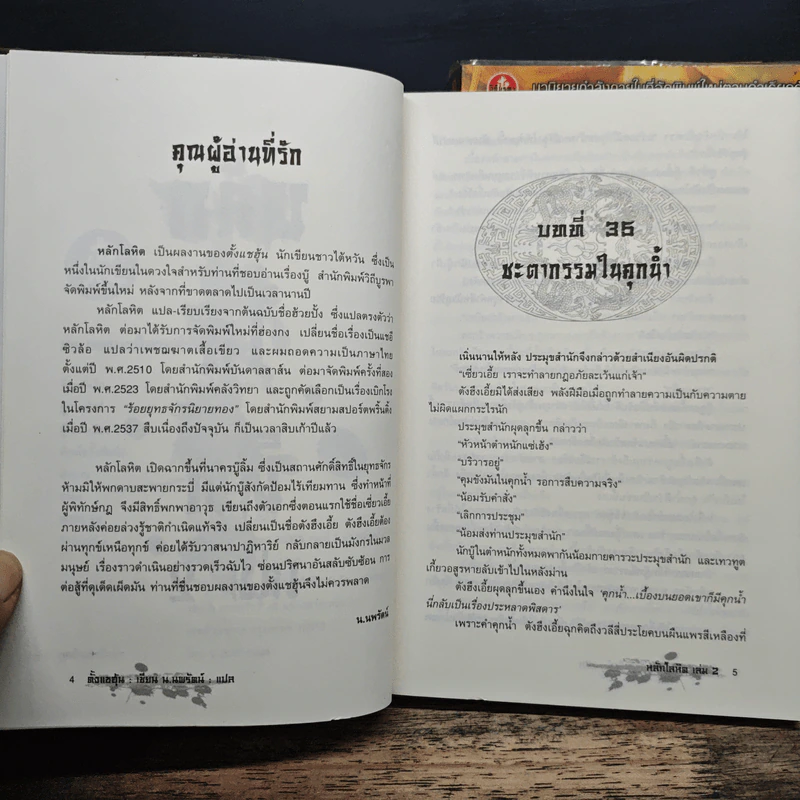 คุณผู้อ่านที่รัก
หลักโลหิต เป็นผลงานของตั้งแชฮุ้น นักเขียนชาวไต้หวัน ซึ่งเป็น
หนึ่งในนักเขียนในดวงใจสำหรับท่านที่ชอบอ่านเรื่องบู๊ สำนักพิมพ์วิถีบูรพา
จัดพิมพ์ขึ้นใหม่ หลังจากที่ขาดตลาดไปเป็นเวลานานปี
หลักโลหิต แปล-เรียบเรียงจากต้นฉบับชื่อฮ้วยปั้ง ซึ่งแปลตรงตัวว่า
หลักโลหิต ต่อมาได้รับการจัดพิมพ์ใหม่ที่ฮ่องกง เปลี่ยนชื่อเรื่องเป็นแชอี
ซิวล้อ แปลว่าเพชฌฆาตเสื้อเขียว และผมถอดความเป็นภาษาไทย
ตั้งแต่ปี พ.ศ.2510 โดยสำนักพิมพ์บันดาลสาส์น ต่อมาจัดพิมพ์ครั้งที่สอง
เมื่อปี พ.ศ.2523 โดยสำนักพิมพ์คลังวิทยา และถูกคัดเลือกเป็นเรื่องเบิกโรง
ในโครงการ “ร้อยยุทธจักรนิยายทอง” โดยสำนักพิมพ์สยามสปอร์ตพริ้นติ้ง
เมื่อปี พ.ศ.2537 สืบเนื่องถึงปัจจุบัน ก็เป็นเวลาสิบเก้าปีแล้ว
หลักโลหิต เปิดฉากขึ้นที่นาครบู๊ลิ้ม ซึ่งเป็นสถานศักดิ์สิทธิ์ในยุทธจักร
ห้ามมิให้พกดาบสะพายกระบี่ มีแต่นักบู๊สังกัดป้อมไร้เทียมทาน ซึ่งทำหน้าที่
ผู้พิทักษ์กฎ จึงมีสิทธิ์พกพาอาวุธ เขียนถึงตัวเอกซึ่งตอนแรกใช้ชื่อเซี่ยวเอี้ย
ภายหลังค่อยล่วงรู้ชาติกำเนิดแท้จริง เปลี่ยนเป็นชื่อตังฮึงเอี้ย ตังฮึงเอี้ยต้อง
ผ่านทุกข์เหนือทุกข์ ค่อยได้รับวาสนาปาฏิหาริย์ กลับกลายเป็นมังกรในมวล
มนุษย์ เรื่องราวดำเนินอย่างรวดเร็วฉับไว ซ่อนปริศนาอันสลับซับซ้อน การ
ต่อสู้ที่ดุเด็ดเผ็ดมัน ท่านที่ชื่นชอบผลงานของตั้งแชฮุ้นจึงไม่ควรพลาด
น.นพรัตน์
4 ตั้งแชฮุ้น : เขียน น.นพรัตน์ : แปล
บทที่ 35
ชะตากรรมในคุกน้ำ
เนิ่นนานให้หลัง ประมุขสำนักจึงกล่าวด้วยสำเนียงอันผิดปรกติ
“เซี่ยวเอี้ย เราจะทำลายกฎอภัยละเว้นแก่เจ้า”
ตังฮึงเอี้ยมิได้ส่งเสียง พลังฝีมือเมื่อถูกทำลายความเป็นกับความตาย
ไม่ผิดแผกกระไรนัก
ประมุขสำนักผุดลุกขึ้น กล่าวว่า
“หัวหน้าตำหนักแซ่เฮ้ง”
“บริวารอยู่”
“คุมขังมันในคุกน้ำ รอการสืบความจริง”
“น้อมรับคำสั่ง”
“เลิกการประชุม”
“น้อมส่งท่านประมุขสำนัก”
นักบู๊ในตำหนักทั้งหมดพากันน้อมกายคารวะประมุขสำนัก และเทวทูต
เกี้ยวอสูรหายลับเข้าไปในหลังม่าน
ตังฮึงเอี้ยผุดลุกขึ้นเอง คำนึงในใจ ‘คุกน้ำ...เบื้องบนยอดเขาก็มีคุกน้ำ
นี่กลับเป็นเรื่องประหลาดพิสดาร’
เพราะคำคุกน้ำ ตังฮึงเอี้ยฉุกคิดถึงวลีสี่ประโยคบนผืนแพรสีเหลืองที่
หลักโลหิต เล่ม 2 5